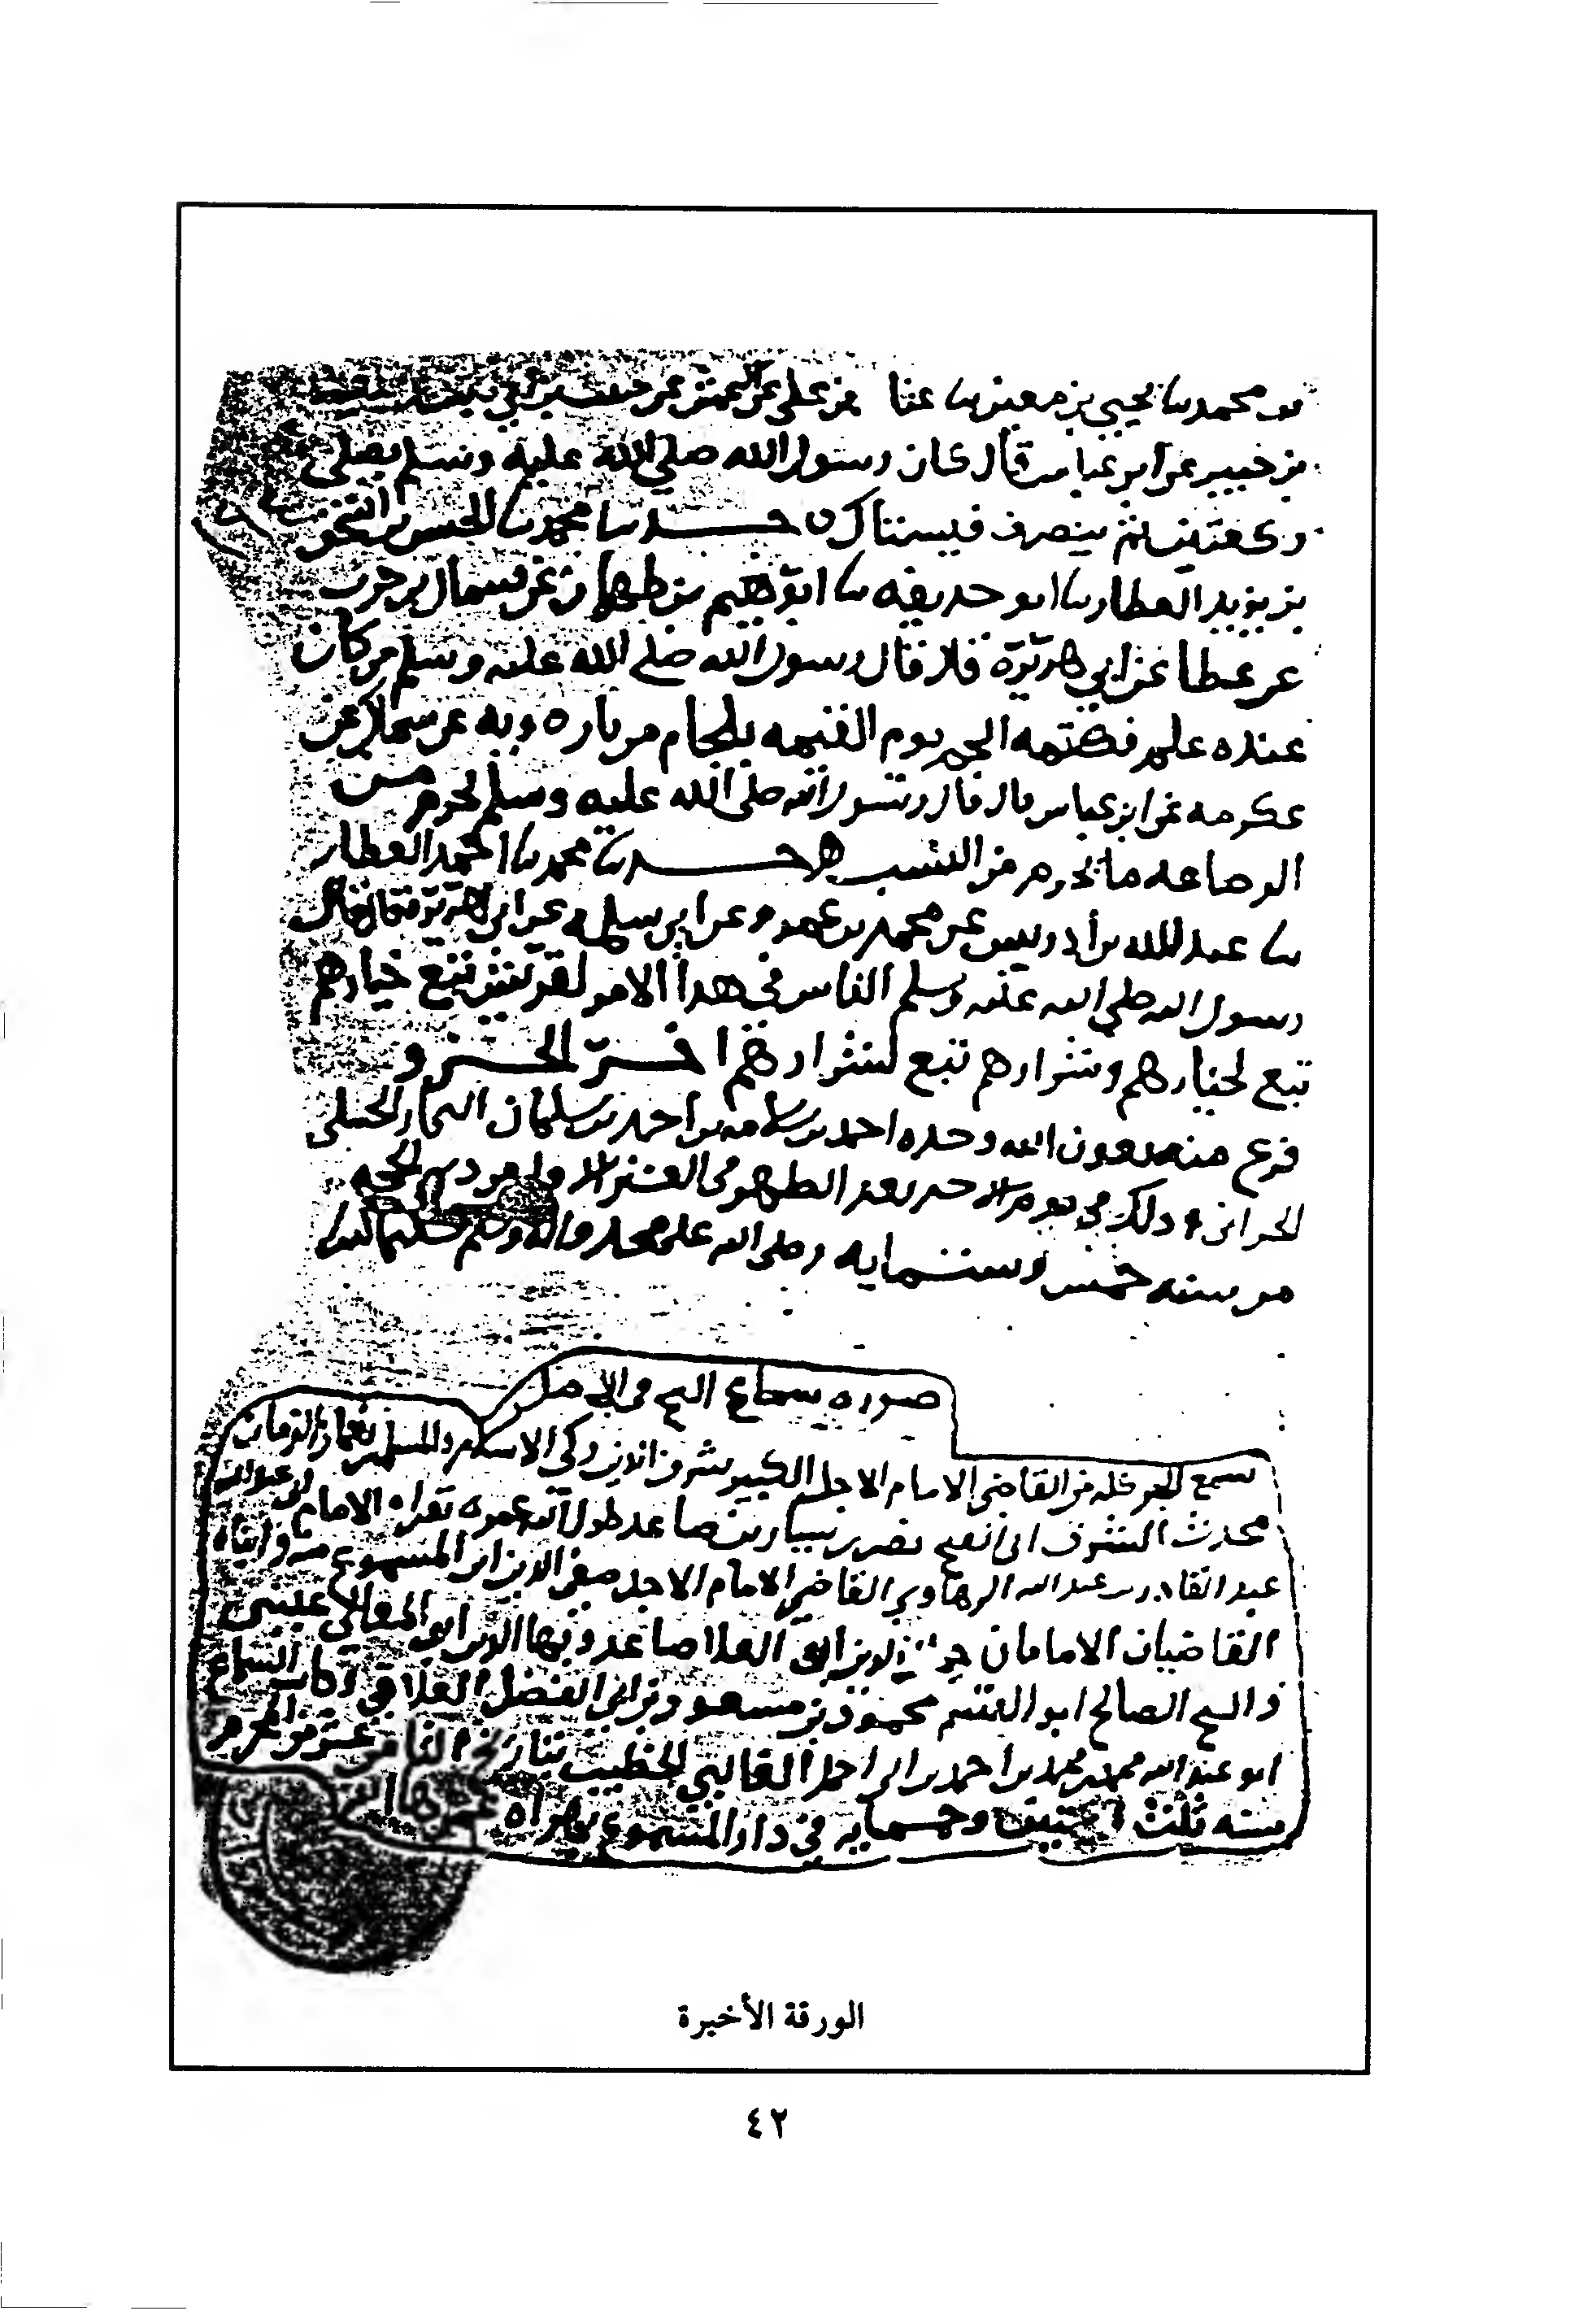 محمد نا يحيى بن معين نا عثا بن علي عن الاعمش عن حبيب بن ابي ثابت
بن جبير عن ابن عباس قال كان رسول الله صلى الله عليه وسلم يصلي
ركعتين ثم ينصرف فيستاك حدثنا محمد نا الحسن بن اسحق
بن يزيد العطار نا ابو حذيفه نا ابرهيم بن طهمان عن سماك بن حرب
عن عطا عن ابي هريرة قال قال رسول الله صلى الله عليه وسلم من كان
عنده علم فكتمه الجم يوم القيمه بلجام من نار ه وبه عن سماك عن
عكرمه عن ابن عباس قال قال رسول الله صلى الله عليه وسلم يحرم من
الرضاعه ما يحرم من النسب ه حدثنا محمد نا احمد العطار
نا عبد الله بن ادريس عن محمد بن عمرو عن ابي سلمه عن ابي هريرة قال قال
رسول الله صلى الله عليه وسلم الناس في هذا الامر لقريش تبع خيارهم
تبع لخيارهم وشرارهم تبع لشرارهم اخر الجزو
فرغ منه بعون الله وحده احمد بن سلامه بن احمد بن سلمان النجار الحنبلي
الحراني وذلك في يوم الاحد بعد الظهر في العشر الاول من ذي الحجه
من سنه خمس وستمايه وصلى الله على محمد واله وسلم تسليما كثيرا
صوره سماع الشيخ في الاصل
سمع الجزو كله من القاضي الامام الاجل الكبير شرف الدين زكي الاسلام والمسلمين نعمان الزمان
محدث الشرف ابي الفتح نصر بن سيار بن صاعد طول الله عمره بقراه الامام ابي عبد الله
عبد القادر بن عبد الله الرهاوي القاضي الامام الاجل صفي الدين ابن المسموع منه وابناه
القاضيان الامامان الدين ابو العلا صاعد وبها الدين ابو المعالي عيسى
والشيخ الصالح ابو القسم محمود بن مسعود بن ابي الفضل العلاقي وكاتب السماع
ابو عبد الله محمد بن محمد بن احمد بن ابي احمد القالبي الخطيب بتاريخ الثامن عشر من المحرم
سنه ثلث ستين وخمسمايه في دار المسموع بهراه
الورقة الأخيرة
٤٢